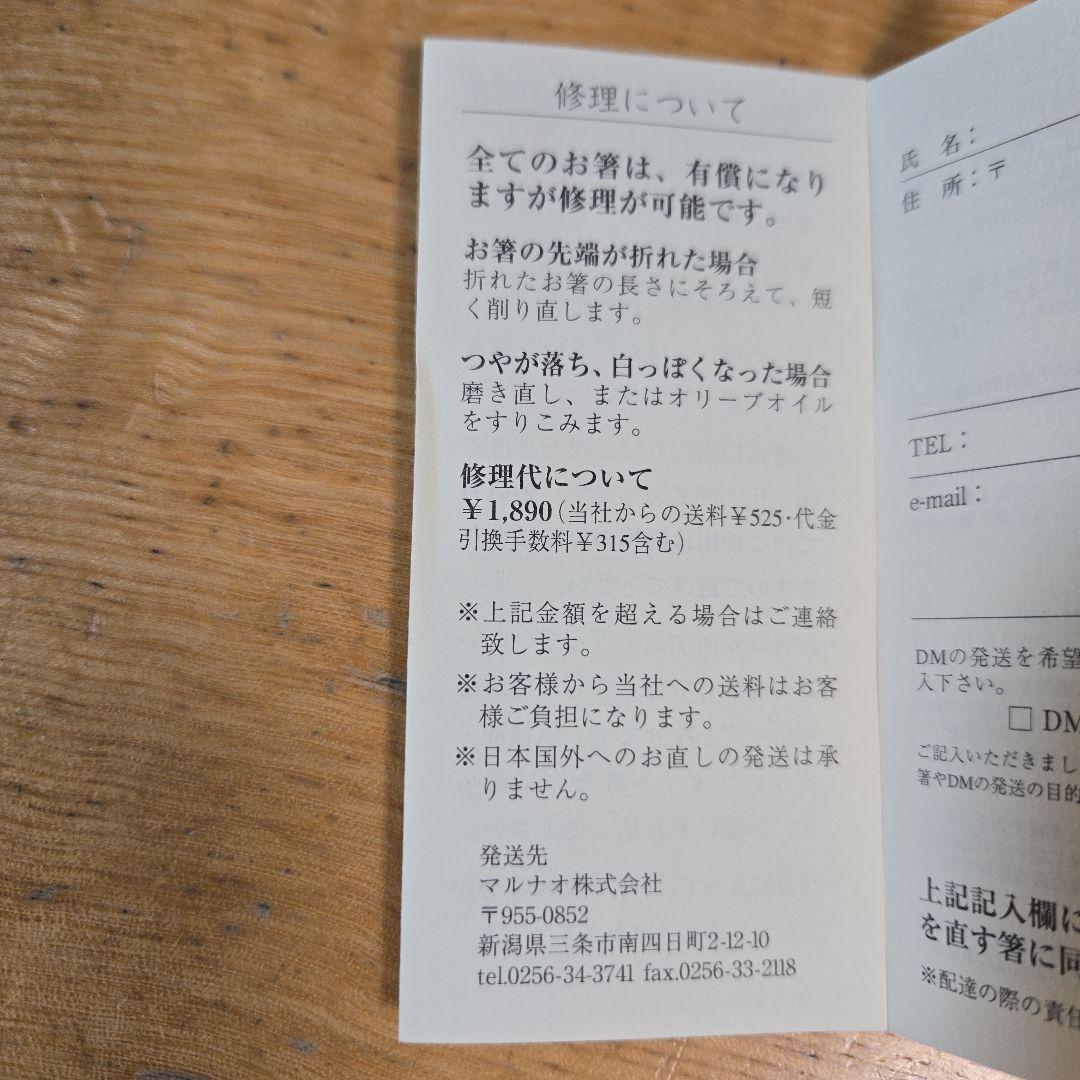 修理について
全てのお箸は、有償になり
ますが修理が可能です。
お箸の先端が折れた場合
折れたお箸の長さにそろえて、短
く削り直します。
つやが落ち、白っぽくなった場合
磨き直し、またはオリーブオイル
をすりこみます。
修理代について
￥1,890（当社からの送料￥525・代金
引換手数料￥315含む）
※上記金額を超える場合はご連絡
致します。
※お客様から当社への送料はお客
様ご負担になります。
※日本国外へのお直しの発送は承
りません。
発送先
マルナオ株式会社
〒955-0852
新潟県三条市南四日町2-12-10
tel.0256-34-3741 fax.0256-33-2118
氏　名：
住　所：〒
TEL：
e-mail：
DMの発送を希望
入下さい。
□ DM
ご記入いただきまし
箸やDMの発送の目的
上記記入欄に
を直す箸に同
※配達の際の責任